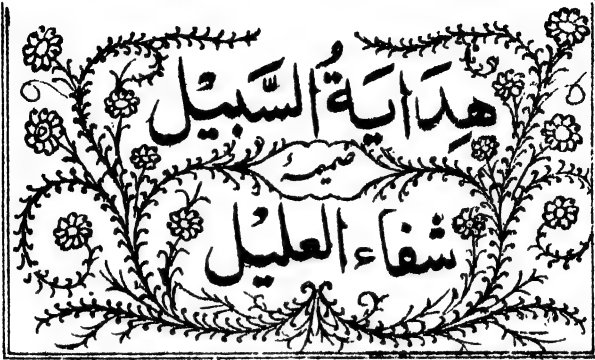 هِدَايَةُ السَّبِيْل
ضمیمہٴ
شفاء العلیْل